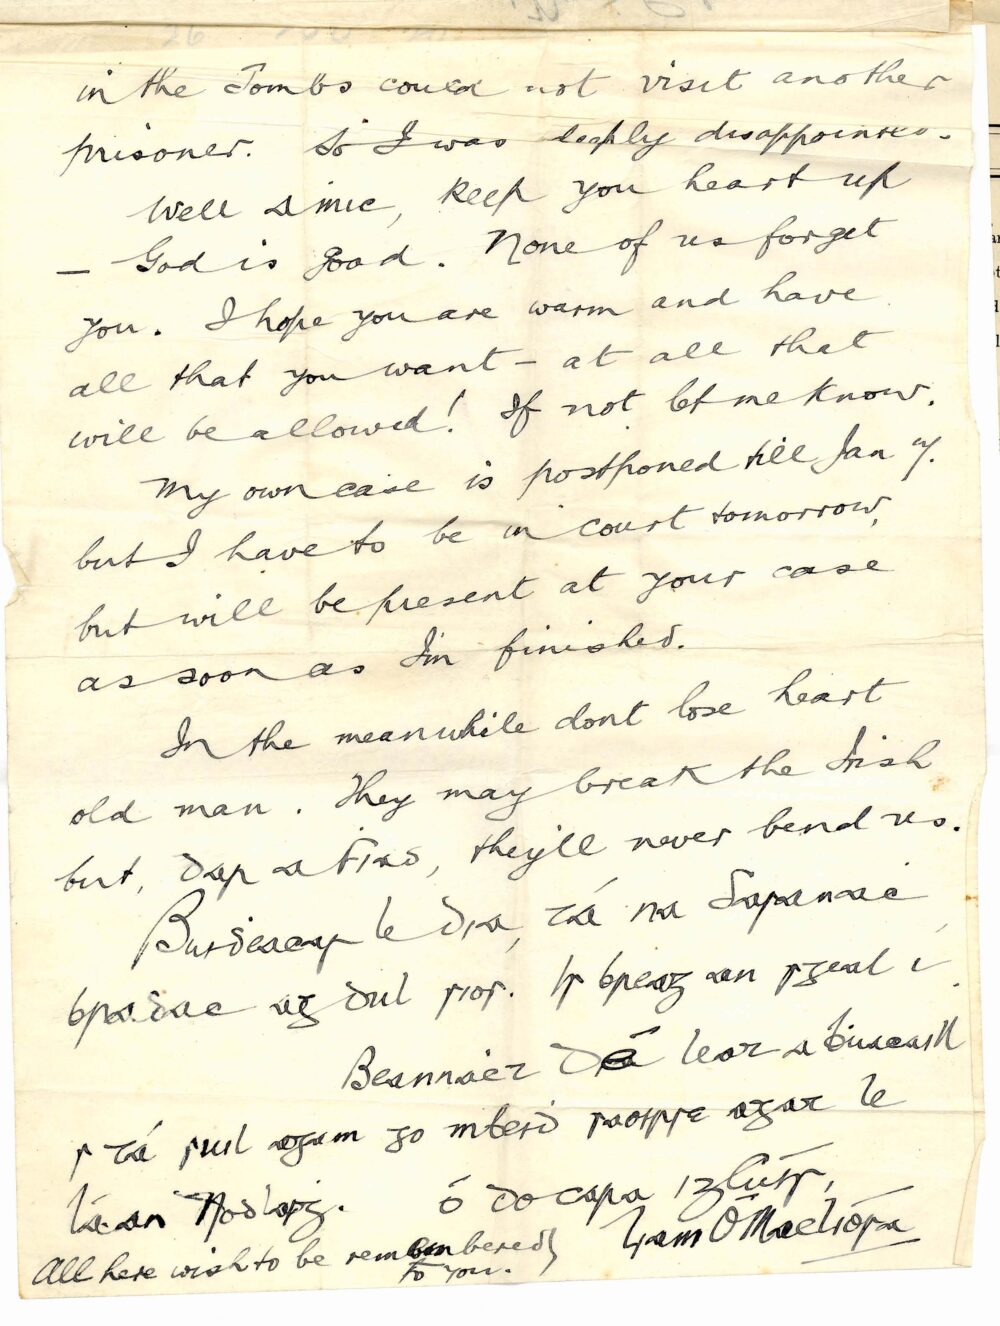 in the Tombs could not visit another
prisoner. So I was deeply disappointed.
Well a mic, keep you heart up
— God is good. None of us forget
you. I hope you are warm and have
all that you want — at all that
will be allowed! If not let me know.
My own case is postponed till Jan 7.
but I have to be in court tomorrow,
but will be present at your case
as soon as I'm finished.
In the meanwhile dont lose heart
old man. They may break the Irish
but, dar a ḃfiad, they'll never bend us.
Buiḋeacar le Dia, tá na Sasanaiċ
bradac ag dul síos. Is breag an sgeal í.
Beannaċt Dé leat a ḃuacaill
⁊ tá suil agam go mbeiḋ saoirse agat le
lá an Nodlaig. Ó do cara i gcúis,
Liam Ó Maelíosa
All here wish to be remembered
to you.